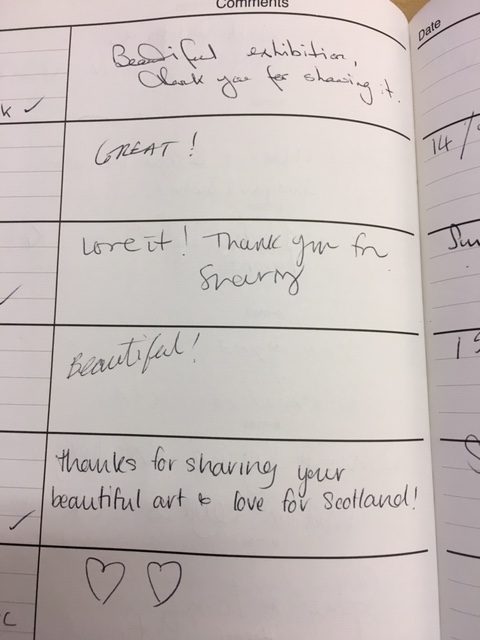 Comments
Date
k ✓
Beautiful exhibition,
thank you for sharing it.
14/
GREAT!
Love it! Thank you for
Sharing
Beautiful!
thanks for sharing your
beautiful art & love for Scotland!
♡ ♡